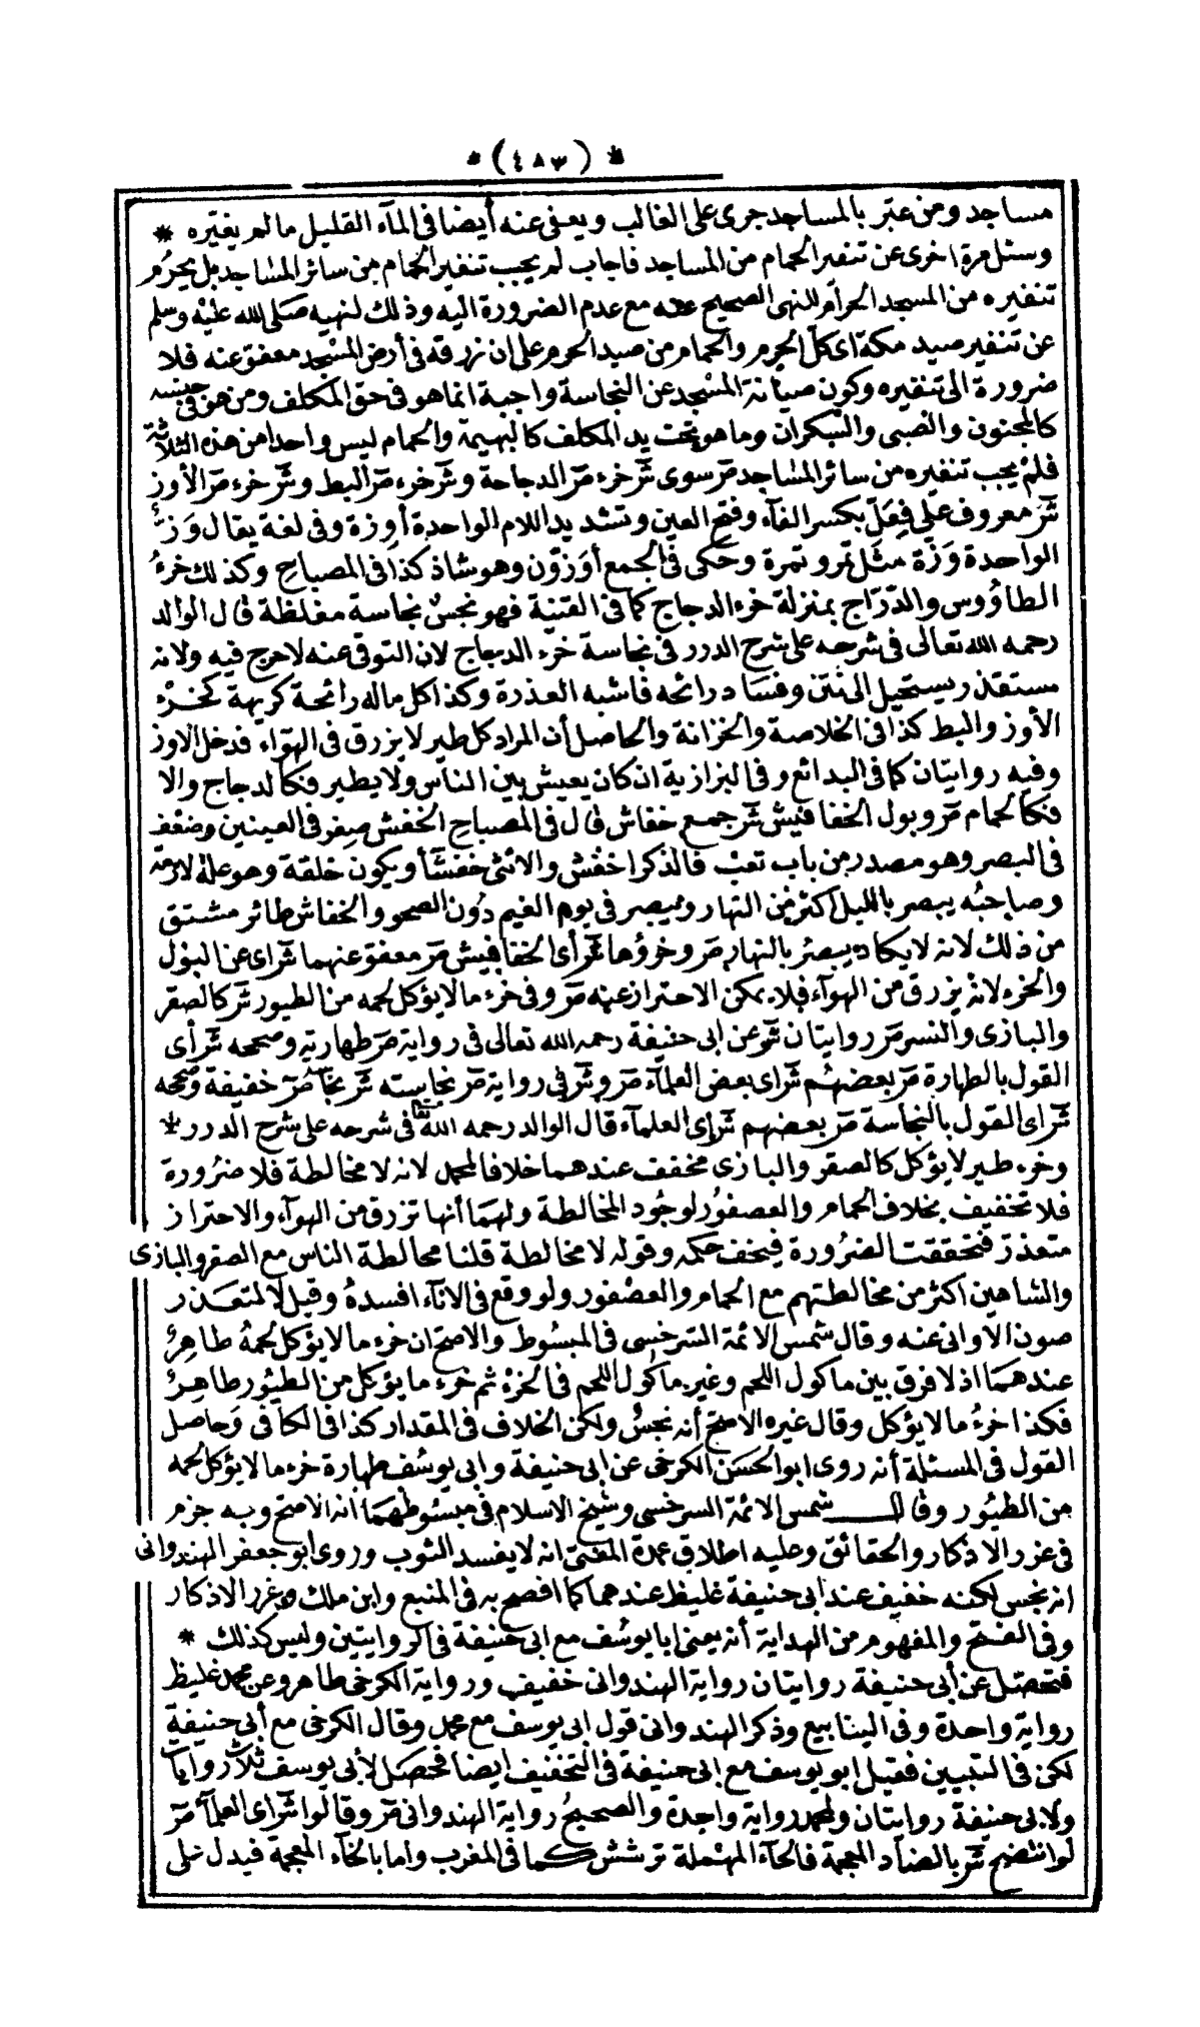 * (٤٨٣) *
مساجد ومن عبر بالمساجد جرى على الغالب ويعفى عنه أيضا فى المآء القليل ما لم يغيّره *
وسئل مرة اخرى عن تنفير الحمام من المساجد فاجاب لم يجب تنفير الحمام من سائر المساجد بل يحرم
تنفيره من المسجد الحرام للنهى الصحيح عنه مع عدم الضرورة اليه وذلك لنهيه صلى الله عليه وسلم
عن تنفير صيد مكة اى كل الحرم والحمام من صيد الحرم على ان زرقه فى أرض المسجد معفو عنه فلا
ضرورة الى تنفيره وكون صيانة المسجد عن النجاسة واجبة انما هو فى حق المكلف ومن هو فى جنسه
كالمجنون والصبى والسكران وما هو تحت يد المكلف كالبهيمة والحمام ليس واحدا من هذه الثلاثة
فلم يجب تنفيره من سائر المساجد صر سوى شر خرء صر الدجاجة وشر خرء صر البط وشر خرء صر الأوز
شر معروف على فِعَلّ بكسر الفآء وفتح العين وتشديد اللام الواحدة أوزة وفى لغة يقال وَزٌّ
الواحدة وَزة مثل تمر وتمرة وحكى فى الجمع أوَزّون وهو شاذ كذا فى المصباح وكذلك خرءُ
الطاؤوس والدرّاج بمنزلة خرء الدجاج كما فى القنية فهو نجسٌ نجاسة مغلظة قال الوالد
رحمه الله تعالى فى شرحه على شرح الدرر فى نجاسة خرء الدجاج لان التوقى عنه لا حرج فيه ولانه
مستقذر يستحيل الى نتن وفساد رائحه فاشبه العذرة وكذا كل ما له رائحة كريهة كخرْء
الأوز والبط كذا فى الخلاصة والخزانة والحاصل أن المراد كل طير لا يزرق فى الهوآء فدخل الاوز
وفيه روايتان كما فى البدائع وفى البزازية ان كان يعيش بين الناس ولا يطير فكالدجاج والا
فكالحمام صر وبول الخفافيش شر جمع خفاش قال فى المصباح الخفش صغر فى العينين وضعف
فى البصر وهو مصدر من باب تعب فالذكر اخفش والانثى خفشآ ويكون خلقة وهو علة لازمة
وصاحبُه يبصر بالليل اكثر من النهار ويبصر فى يوم الغيم دُون الصحو والخفاش طائر مشتق
من ذلك لانه لا يكاد يبصر بالنهار صر وخرؤها شر أى الخفافيش صر معفو عنهما شر اى عن البول
والخرء لانه يزرق من الهوآء فلا يمكن الاحتراز عنه صر وفى خرء ما لا يؤكل لحمه من الطيور شر كالصقر
والبازى والنسر صر روايتان شر عن ابى حنيفة رحمه الله تعالى فى رواية صر طهارته وصححه شر أى
القول بالطهارة صر بعضهُم شر اى بعض العلمآء صر وشر فى رواية صر نجاسته شر نجآسة صر خفيفة وصححه
شر اى القول بالنجاسة صر بعضهم شر اى العلمآء قال الوالد رحمه الله تعالى فى شرحه على شرح الدرر *
وخرء طير لا يؤكل كالصقر والبازى مخفف عندهما خلافا لمحمد لانه لا مخالطة فلا ضرورة
فلا تخفيف بخلاف الحمام والعصفُور لوجُود المخالطة ولهمَا أنها تزرق من الهوآء والاحتراز
متعذر فتحققت الضرُورة فيخف حكمه وقوله لا مخالطة قلنا مخالطة الناس مع الصقر والبازى
والشاهين اكثر من مخالطتهم مع الحمام والعصْفور ولو وقع فى الانآء افسدهُ وقيل لا لتعذر
صون الأوانى عنه وقال شمس الائمة السرخسى فى المبسُوط والاصح ان خرء ما لا يؤكل لحمهُ طاهِرٌ
عندهمَا اذ لا فرق بين مأكول اللحم وغير مأكول اللحم فى الخرْء ثم خرء ما يؤكل من الطيُور طاهِرٌ
فكذا خرءُ ما لا يؤكل وقال غيره الاصح أنه نجسٌ ولكن الخلاف فى المقدار كذا فى الكافى وحاصل
القول فى المسئلة أنه روى ابو الحسَن الكرخى عن ابى حنيفة وابى يوسُف طهارة خرء ما لا يؤكل لحمه
من الطيُور وقال شمس الائمة السرخسى وشيخ الاسلام فى مبسُوطهمَا انه الاصح وبه جزم
فى غرر الاذكار والحقائق وعليه اطلاق عمدة المفتى انه لا يفسد الثوب وروى ابو جعفر الهندوانى
انه نجس لكنه خفيف عند ابى حنيفة غليظ عندهما كما افصح به فى المنبع وابن ملك وغرر الاذكار
وفى الفتح والمفهوم من الهداية أنه يعنى ابا يوسُف مع ابى حنيفة فى الروايتين وليس كذلك *
فتحصّل عن أبى حنيفة روايتان رواية الهندوانى خفيف ورواية الكرخى طاهر وعن محمد غليظ
رواية واحدة وفى الينابيع وذكر الهندوانى قول ابى يوسف مع محمد وقال الكرخى مع أبى حنيفة
لكن فى التبيين فقيل ابو يوسف مع ابى حنيفة فى التخفيف ايضا فحصَل لأبى يوسف ثلاث روايات
ولابى حنيفة روايتان ولمحمد رواية واحدة والصحيحُ رواية الهندوانى صر وقالوا شر اى العلمآء صر
لو انتضح شر بالضاد المعجمة فالحآء المهْملة ترشش كما فى المغرب واما بالخآء المعجمة فيدل على